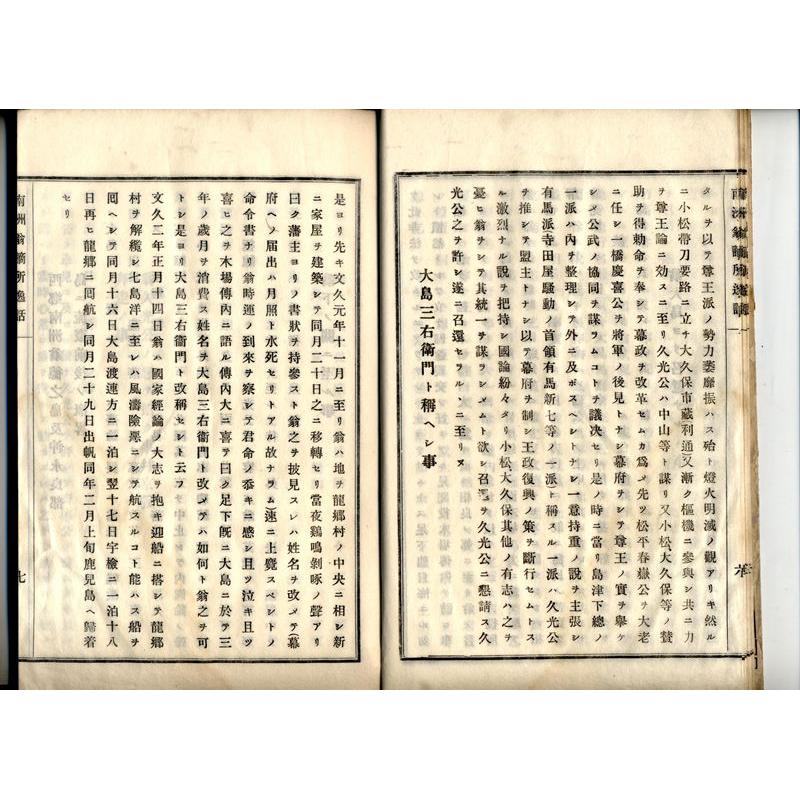 タルヲ以テ尊王派ノ勢力萎靡振ハス殆ト燈火明滅ノ觀アリキ然ル
ニ小松帶刀要路ニ立チ大久保市藏利通又漸ク樞機ニ參與シ共ニ力
ヲ尊王論ニ効スニ至リ久光公ハ中山等ト謀リ又小松、大久保等ノ贊
助ヲ得勅命ヲ奉シテ幕政ヲ改革セムカ爲メ先ツ松平春嶽公ヲ大老
ニ任シ一橋慶喜公ヲ將軍ノ後見トナシ幕府ヲシテ尊王ノ實ヲ擧ケ
シメ公武ノ協同ヲ謀ラムコトヲ議决セリ是ノ時ニ當リ島津下總ノ
一派ハ内ヲ整理シテ外ニ及ボスヘシトナシ一意持重ノ説ヲ主張シ
有馬派寺田屋騷動ノ首領有馬新七等ノ一派)ト稱スル一派ハ久光公
ヲ推シテ盟主トナシ以テ幕府ヲ制シ王政復興ノ策ヲ斷行セムトス
ル激烈ナル説ヲ把持シ國論紛々タリ小松、大久保其他ノ有志ハ之ヲ
憂ヒ翁ヲシテ其統一ヲ謀ラシメムト欲シ召還ヲ久光公ニ懇請ス久
光公之ヲ許シ遂ニ召還セラル丶ニ至リヌ
大島三右衛門ト稱ヘシ事
六
是ヨリ先キ文久元年十一月ニ至リ翁ハ地ヲ龍郷村ノ中央ニ相シ新
ニ家屋ヲ建築シテ同月二十日之ニ移轉セリ當夜鷄鳴剝啄ノ聲アリ
曰ク藩主ヨリノ書狀ヲ持參スト翁之ヲ披見スレハ姓名ヲ改メテ(幕
府ヘノ届出ハ月照ト水死セリトアル故ナラム)速ニ上鹿スベシトノ
命令書ナリ翁時運ノ到來ヲ察シテ君命ノ忝キニ感シ且ツ泣キ且ツ
喜ヒ之ヲ木場傳内ニ語ル傳内大ニ喜テ曰ク足下既ニ大島ニ於テ三
年ノ歳月ヲ消費ス姓名ヲ大島三右衛門ト改メテハ如何ト翁之ヲ可
トシ是ヨリ大島三右衛門ト改稱セシト云フ
文久二年正月十四日翁ハ國家經論ノ大志ヲ抱キ迎船ニ搭シテ龍郷
村ヲ解纜シ七島洋ニ至レハ風濤險惡ニシテ航スルコト能ハス船ヲ
回ヘシテ同月十六日大島渡連方ニ一泊シ翌十七日宇檢ニ一泊十八
日再ヒ龍郷ニ回航シ同月二十九日出帆同年二月上旬鹿兒島ヘ歸着
セリ
南洲翁謫所逸話
七